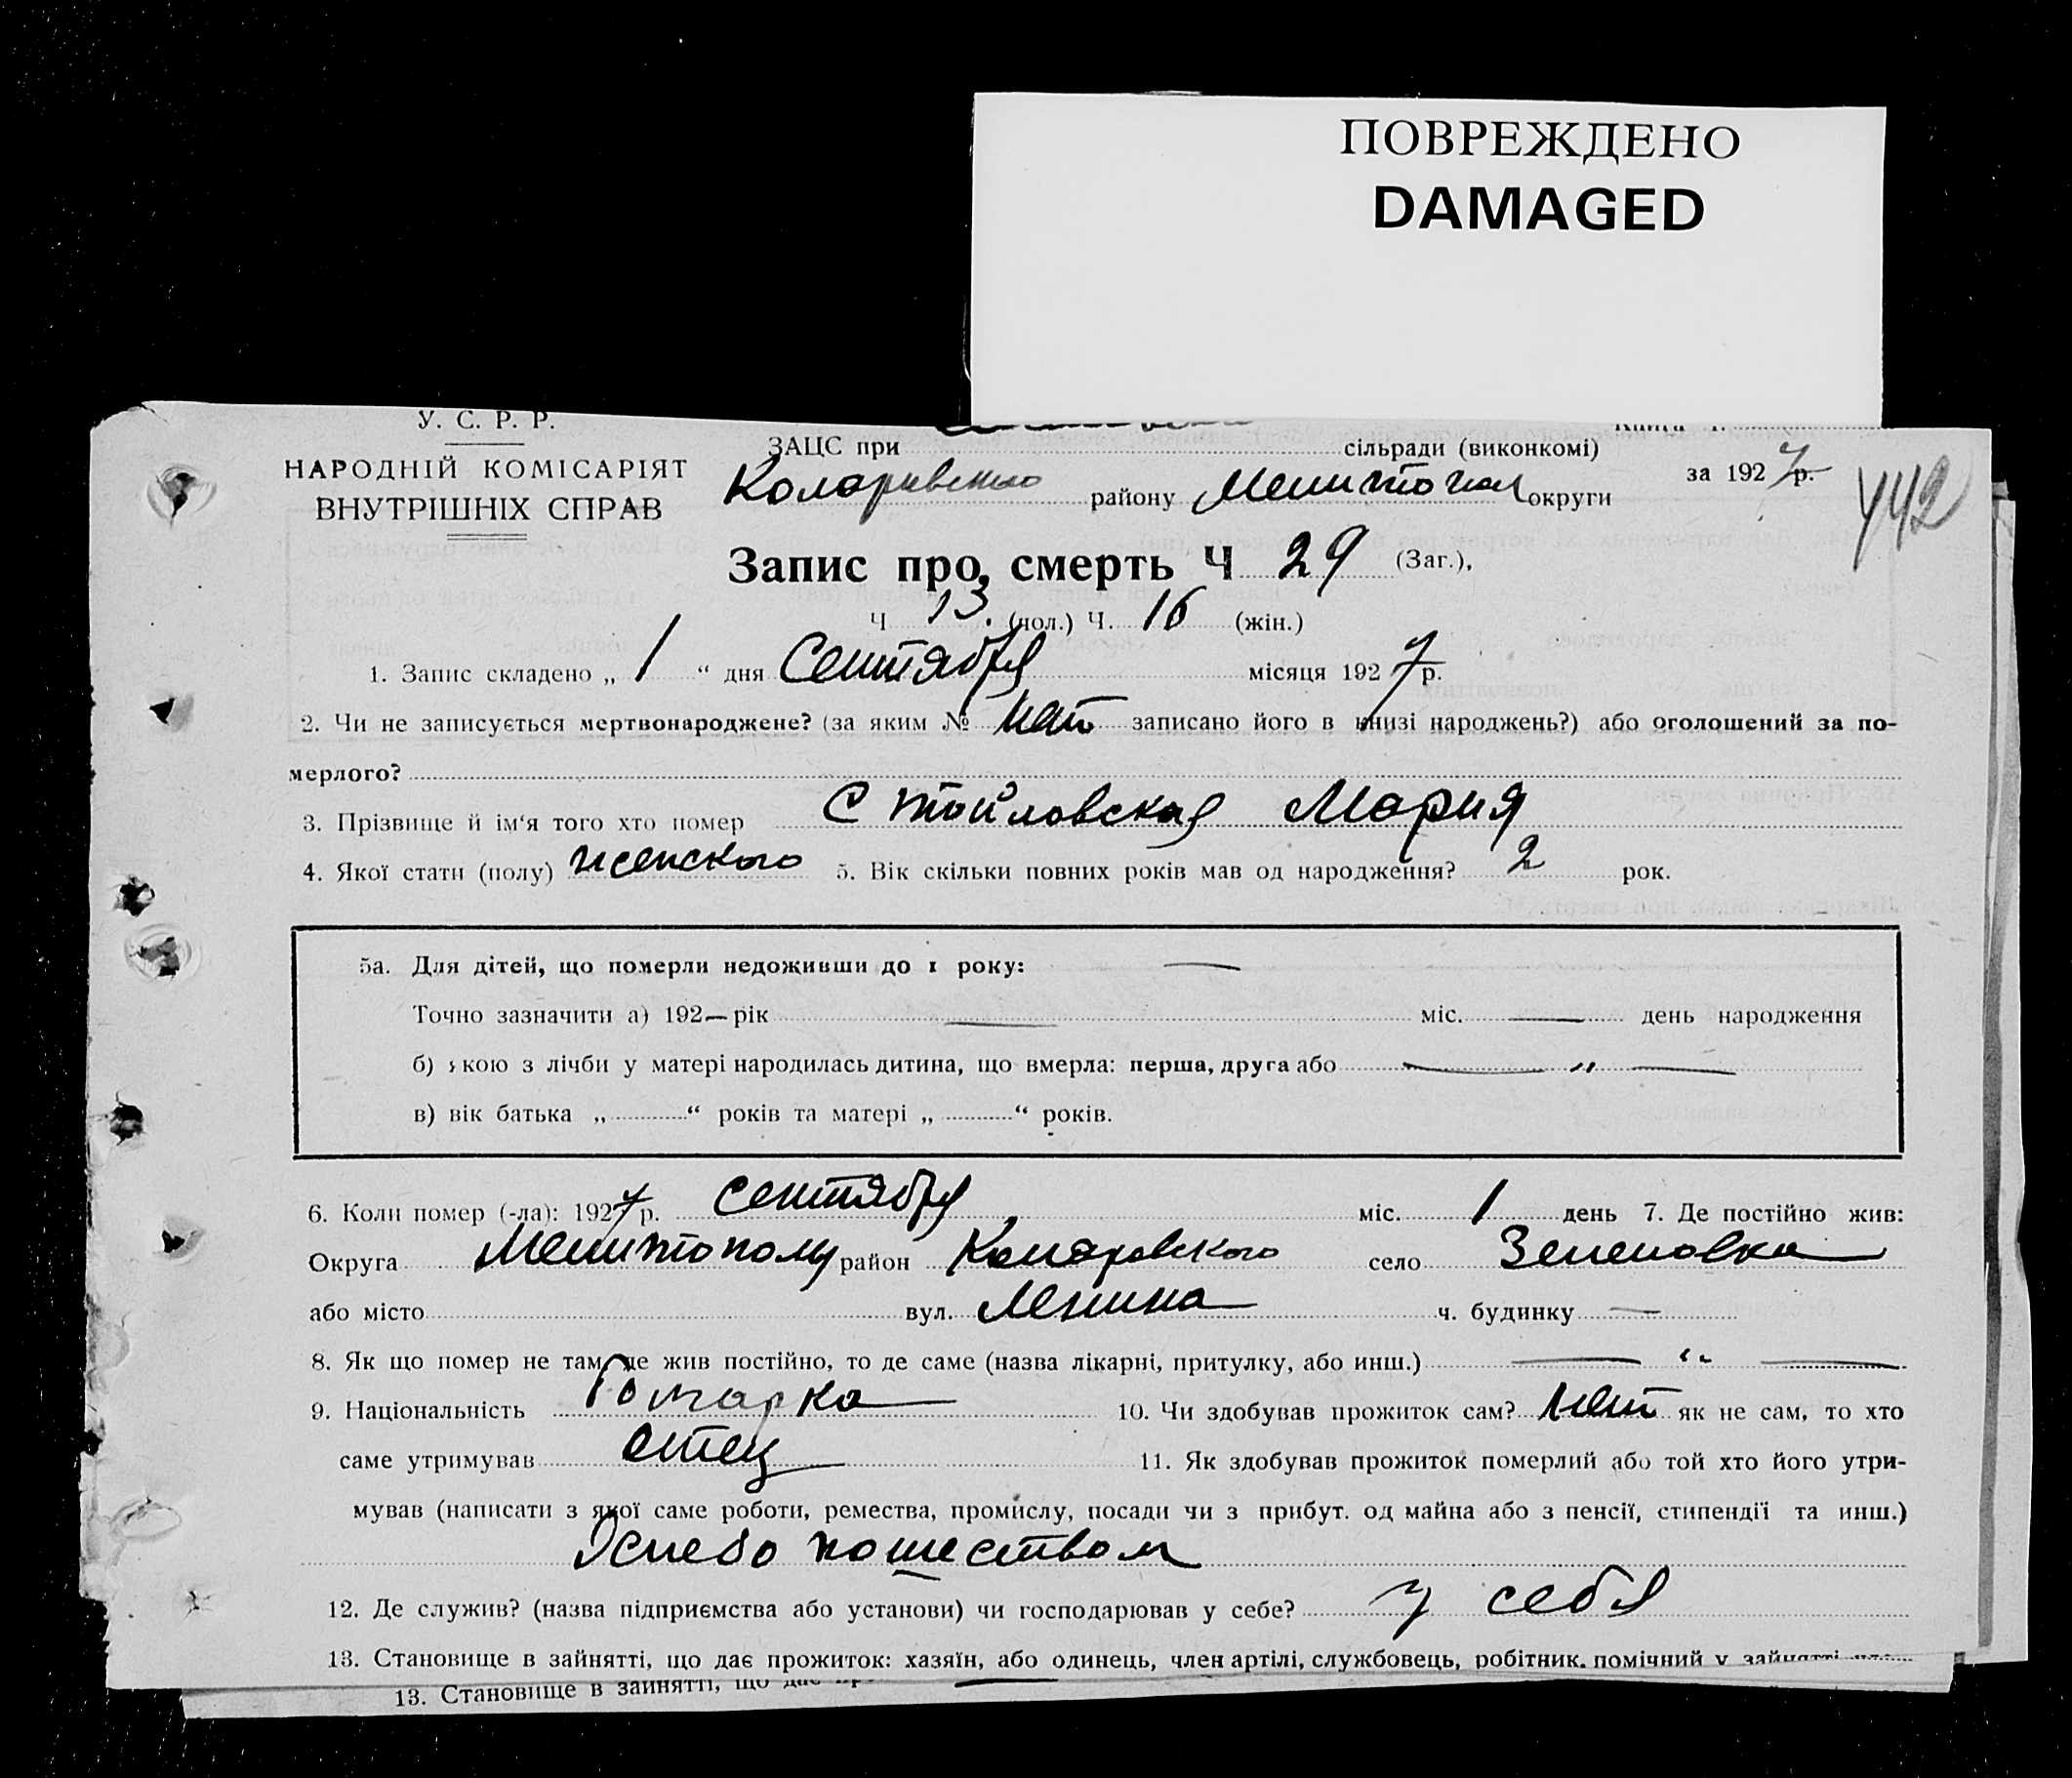 ПОВРЕЖДЕНО
DAMAGED
У. С. Р. Р.
НАРОДНІЙ КОМІСАРІЯТ
ВНУТРІШНІХ СПРАВ
ЗАЦС при сільради (виконкомі)
Коларовского району Мелитопол округи
за 1927 р.
442
Запис про смерть Ч 29 (Заг.),
Ч 13. (чол.) Ч. 16 (жін.)
1. Запис складено „ 1 “ дня Сентября місяця 1927 р.
2. Чи не записується мертвонароджене? (за яким № нет записано його в книзі народжень?) або оголошений за по-
мерлого?
3. Прізвище й ім‘я того хто помер Стойловская Мария
4. Якої стати (полу) женского 5. Вік скільки повних років мав од народження? 2 рок.
5а. Для дітей, що померли недоживши до 1 року: —
Точно зазначити а) 192— рік — міс. — день народження
б) якою з лічби у матері народилась дитина, що вмерла: перша, друга або — „ —
в) вік батька „ “ років та матері „ “ років.
6. Коли помер (-ла): 1927 р. Сентября міс. 1 день 7. Де постійно жив:
Округа Мелитополь район Коларовского село Зеленовка
або місто вул. Ленина ч. будинку —
8. Як що помер не там, де жив постійно, то де саме (назва лікарні, притулку, або инш.) — “ —
9. Національність Болгарка 10. Чи здобував прожиток сам? Нет як не сам, то хто
саме утримував отец 11. Як здобував прожиток померлий або той хто його утри-
мував (написати з якої саме роботи, ремества, промислу, посади чи з прибут. од майна або з пенсії, стипендії та инш.)
Хлебопашеством
12. Де служив? (назва підприємства або установи) чи господарював у себе? у себя
13. Становище в зайнятті, що дає прожиток: хазяїн, або одинець, член артілі, службовець, робітник, помічний у зайнятті
13. Становище в зайнятті, що дає